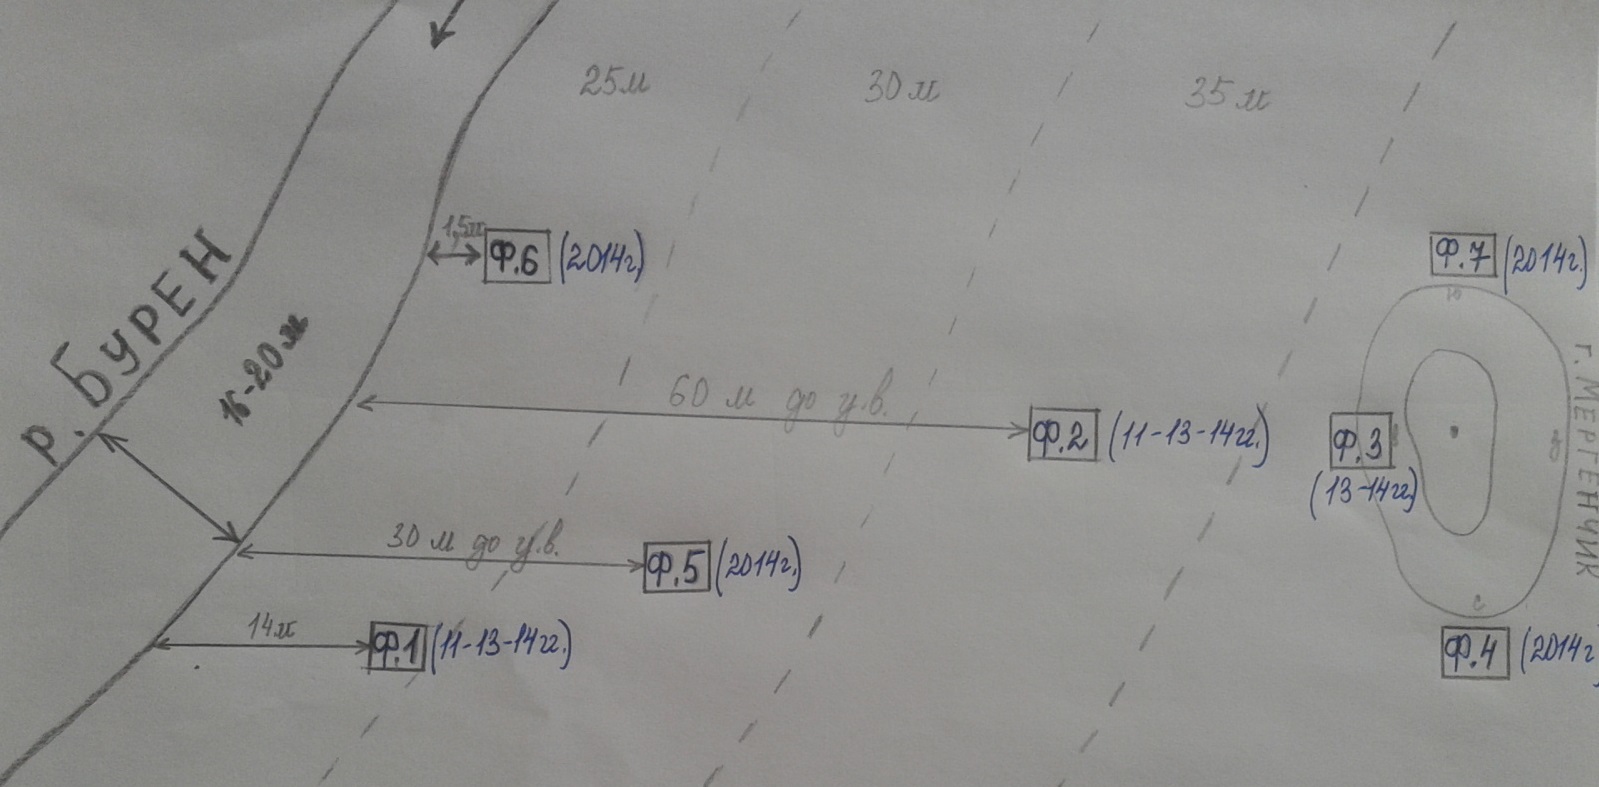 25м
30м
35м
р. БУРЕН
16-20м
1,5м
Ф.6 (2014г.)
Ф.7 (2014г.)
Ю
60 м до у.в.
Ф.2 (11-13-14гг.)
Ф.3
(13-14гг)
г. МЕРГЕНЧИК
30 м до у.в.
Ф.5 (2014г.)
14м
Ф.1 (11-13-14гг.)
С
Ф.4 (2014г